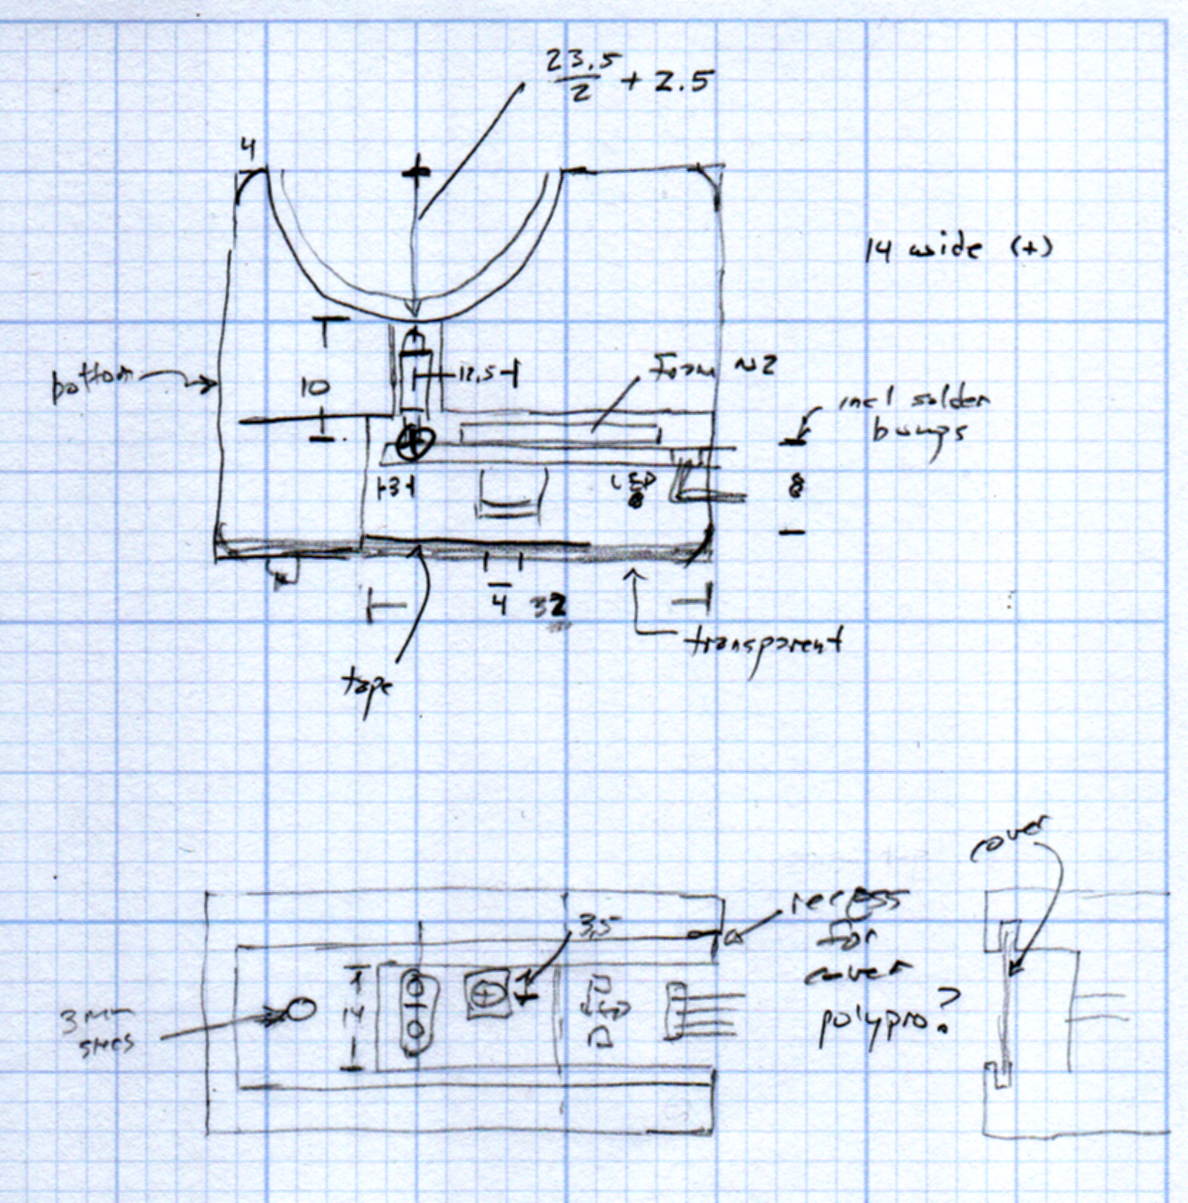 23.5
2 + 2.5
4
14 wide (+)
bottom
10
12.5
Foam ~2
incl solder
bumps
3
LED
8
4
32
tape
transparent
cover
recess
for
cover
polypro?
3.5
14
LED
3mm